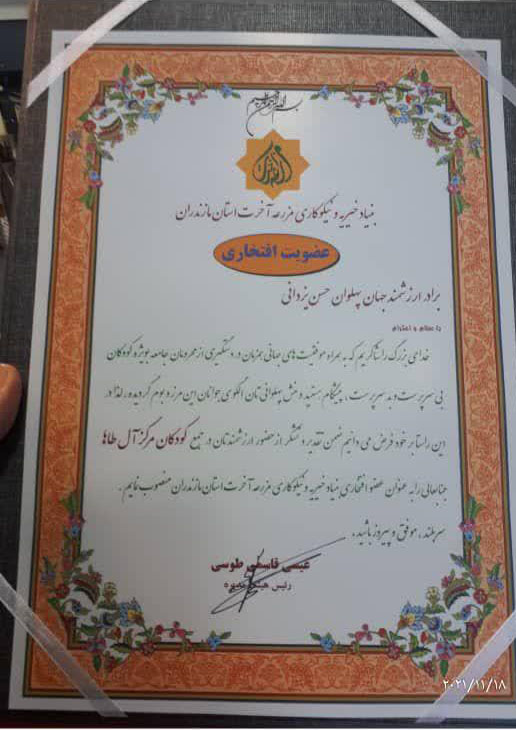 بسم الله الرحمن الرحیم
بنیاد خیریه و نیکوکاری مزرعه آخرت استان مازندران
عضویت افتخاری
برادر ارزشمند جهان پهلوان حسن یزدانی
با سلام و احترام
خدای بزرگ را شاکریم که به همراه موفقیت های جهانی همزمان در دستگیری از محرومان جامعه بویژه کودکان
بی سرپرست و بد سرپرست، پیشگام هستید و منش پهلوانی تان الگوی جوانان این مرز و بوم گردیده، لذا در
این راستا بر خود فرض می دانیم ضمن تقدیر و تشکر از حضور ارزشمندتان در جمع کودکان مرکز آل طاها
جنابعالی را به عنوان عضو افتخاری بنیاد خیریه و نیکوکاری مزرعه آخرت استان مازندران منصوب نمایم.
سربلند، موفق و پیروز باشید.
عیسی قاسمی طوسی
رئیس هیئت مدیره
۲۰۲۱/۱۱/۱۸